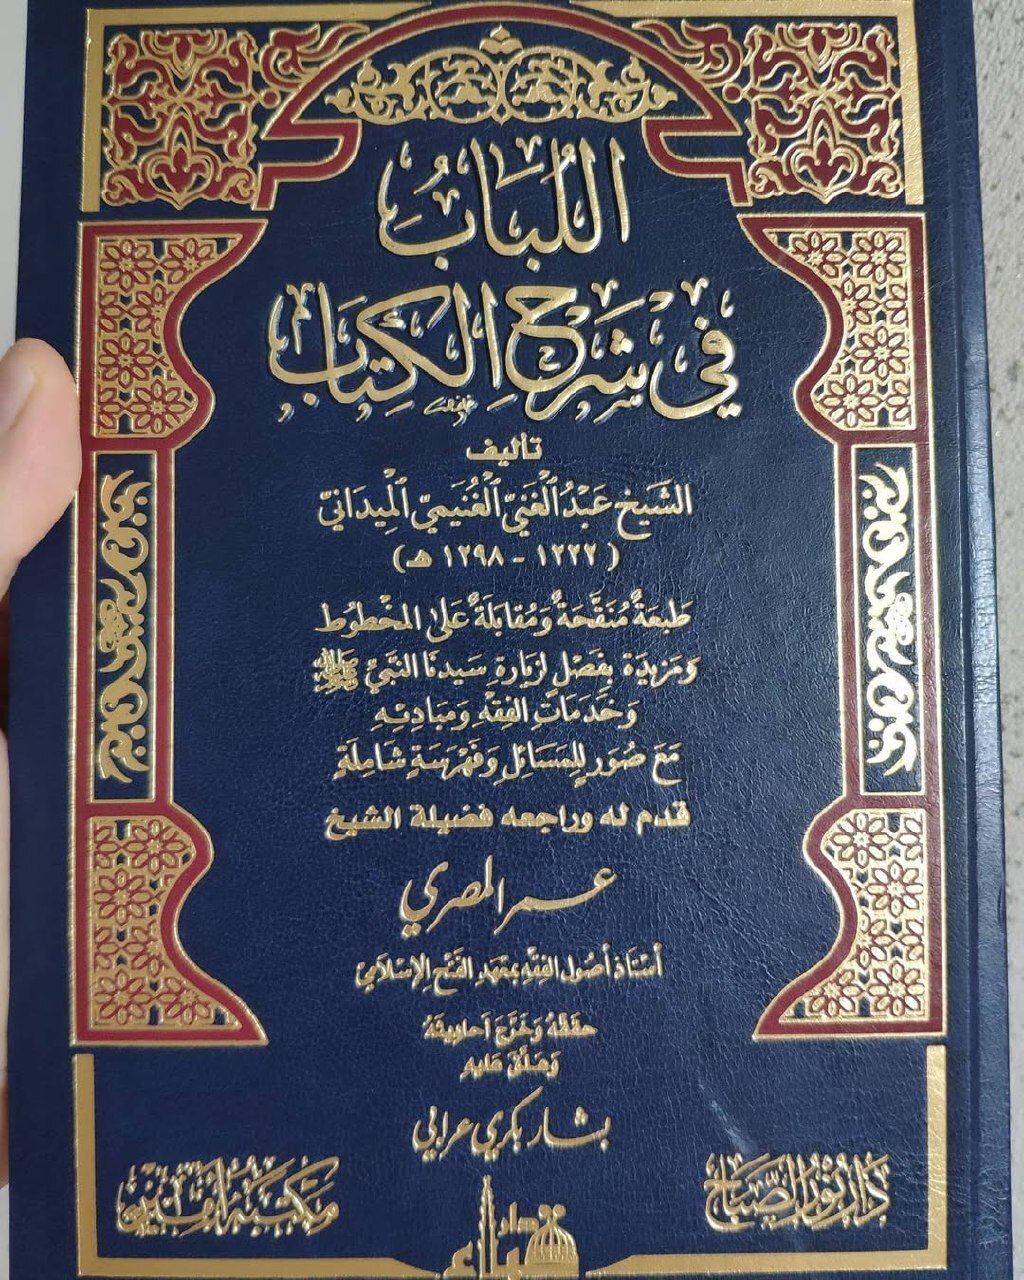 اللُّبَابُ
فِي شَرْحِ الْكِتَابِ
تأليف
الشَّيْخ عَبْدُ الْغَنِيّ الْغُنَيمِيّ الْمِيدَانِيّ
(١٢٢٢ - ١٢٩٨ هـ)
طَبعَةٌ مُنَقَّحَةٌ وَمُقابَلَةٌ عَلى المخْطُوط
وَمَزِيدَة بِفَصْلٍ لِزيَارَةِ سَيدنَا النَّبيِّ ﷺ
وَخَدَمَاتِ الفِقْهِ وَمَبَادِئِهِ
مَعَ صُوَرٍ لِلمَسَائِلِ وَفَهْرَسَةٍ شَامِلَةٍ
قدم له وراجعه فضيلة الشيخ
عمر المصري
أستاذ أصول الفِقْهِ بمَعهَدِ الفَتْحِ الإسْلَامِيّ
حَقَّقَهُ وَخَرَّجَ أحَادِيثَهُ
وَعَلَّقَ عَلَيهِ
بشار بكري عرابي
دَارُ نُورِ الصَّبَاح
مَكتَبَة
دار